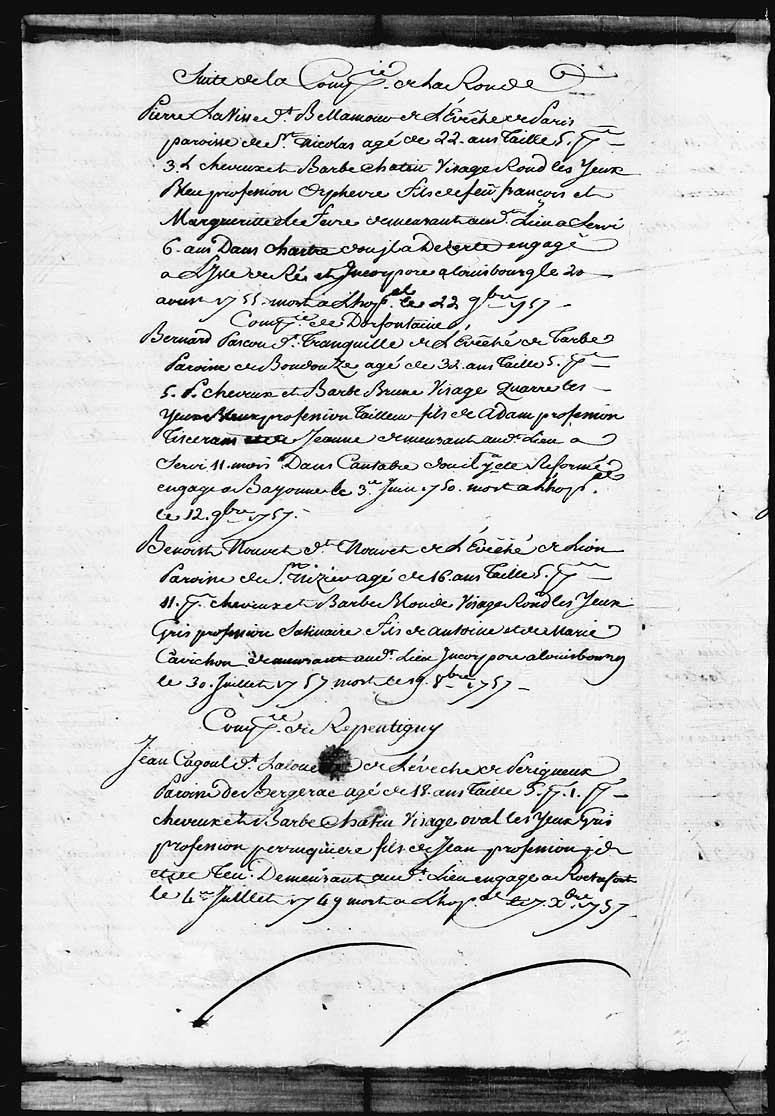 Suite de la Comp.ie de La Ronde
Pierre LaVisse d.t Bellamour de L'Evêché de Paris
paroisse de S.t Nicolas agé de 22. ans Taille 5. p.
3. L cheveux et Barbe chatin Visage Rond les Yeux
Bleu profession Orphevre fils de feu françois et
Margueritte Le Fevre demeurant aud.t Lieu a Servi
6. ans Dans chartre dou jl a Deserté engagé
a L'Jsle de Rés et Jncorpore a Louisbourg le 20
avril 1755. mort a L'hop.el le 22 9bre 1757.
Comp.ie de Desfontaine
Bernard Pascou d.t Tranquille de L'Evêché de Tarbe
Paroisse de agé de 32. ans Taille 5. p.
5. P. cheveux et Barbe Brune Visage Quarre les
Yeux Bleux profession Tailleur fils de Adam profession
Tisceran et de Jeanne demeurant aud.t Lieu a
Servi 11. mois Dans Cantabre dou il a ete Reformé
engagé a Bayonne le 3.e Juin 1750. mort a Lhop.el
le 12. 9bre 1757.
Benoist Nouvet d.t Nouvet de L'Evêché de Lion
Paroisse de S.t Nizier agé de 16 ans Taille 5. p.
11. p. cheveux et Barbe Blonde Visage Rond les Yeux
Gris profession Satinaire fils de Antoine et de Marie
Cavichon demeurant aud.t Lieu Jncorpore a Louisbourg
le 30. Juillet 1757 mort le 19. 8bre 1757.
Comp.ie de Repentigny
Jean Cagoul d.t de L'évêché de Perigueux
Paroisse de Bergerac agé de 18. ans Taille 5. p. 1. p.
cheveux et Barbe Chatin Visage oval les Yeux Gris
profession perruquiere fils de Jean profession
et de feu Demeurant aud.t Lieu engagé a Rochefort
le 4.e Juillet 1749 mort a L'hop.el le 17. Xbre 1757.